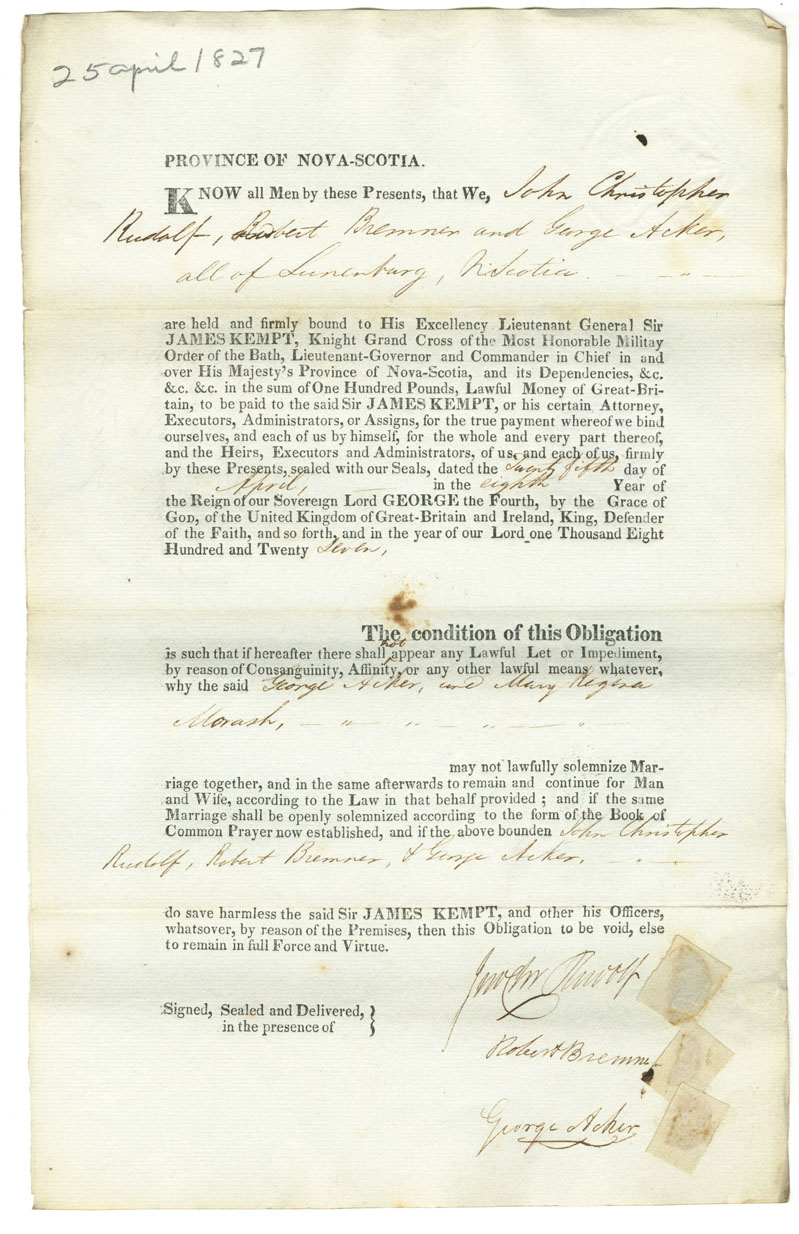 25 april 1827
PROVINCE OF NOVA-SCOTIA.
KNOW all Men by these Presents, that We, John Christopher
Rudolf, Robert Bremner and George Acker,
all of Lunenburg, N. Scotia.
are held and firmly bound to His Excellency Lieutenant General Sir
JAMES KEMPT, Knight Grand Cross of the Most Honorable Militay
Order of the Bath, Lieutenant-Governor and Commander in Chief in and
over His Majesty's Province of Nova-Scotia, and its Dependencies, &c.
&c. &c. in the sum of One Hundred Pounds, Lawful Money of Great-Bri-
tain, to be paid to the said Sir JAMES KEMPT, or his certain Attorney,
Executors, Administrators, or Assigns, for the true payment whereof we bind
ourselves, and each of us by himself, for the whole and every part thereof,
and the Heirs, Executors and Administrators, of us, and each of us, firmly
by these Presents, sealed with our Seals, dated the Twenty fifth day of
April, in the eighth Year of
the Reign of our Sovereign Lord GEORGE the Fourth, by the Grace of
GOD, of the United Kingdom of Great-Britain and Ireland, King, Defender
of the Faith, and so forth, and in the year of our Lord one Thousand Eight
Hundred and Twenty Seven,
The condition of this Obligation
is such that if hereafter there shall not appear any Lawful Let or Impediment,
by reason of Consanguinity, Affinity, or any other lawful means whatever,
why the said George Acker, and Mary Regina
Morash,
may not lawfully solemnize Mar-
riage together, and in the same afterwards to remain and continue for Man
and Wife, according to the Law in that behalf provided ; and if the same
Marriage shall be openly solemnized according to the form of the Book of
Common Prayer now established, and if the above bounden John Christopher
Rudolf, Robert Bremner, & George Acker,
do save harmless the said Sir JAMES KEMPT, and other his Officers,
whatsover, by reason of the Premises, then this Obligation to be void, else
to remain in full Force and Virtue.
Rudolf
Signed, Sealed and Delivered, }
in the presence of
Robert Bremner
George Acker